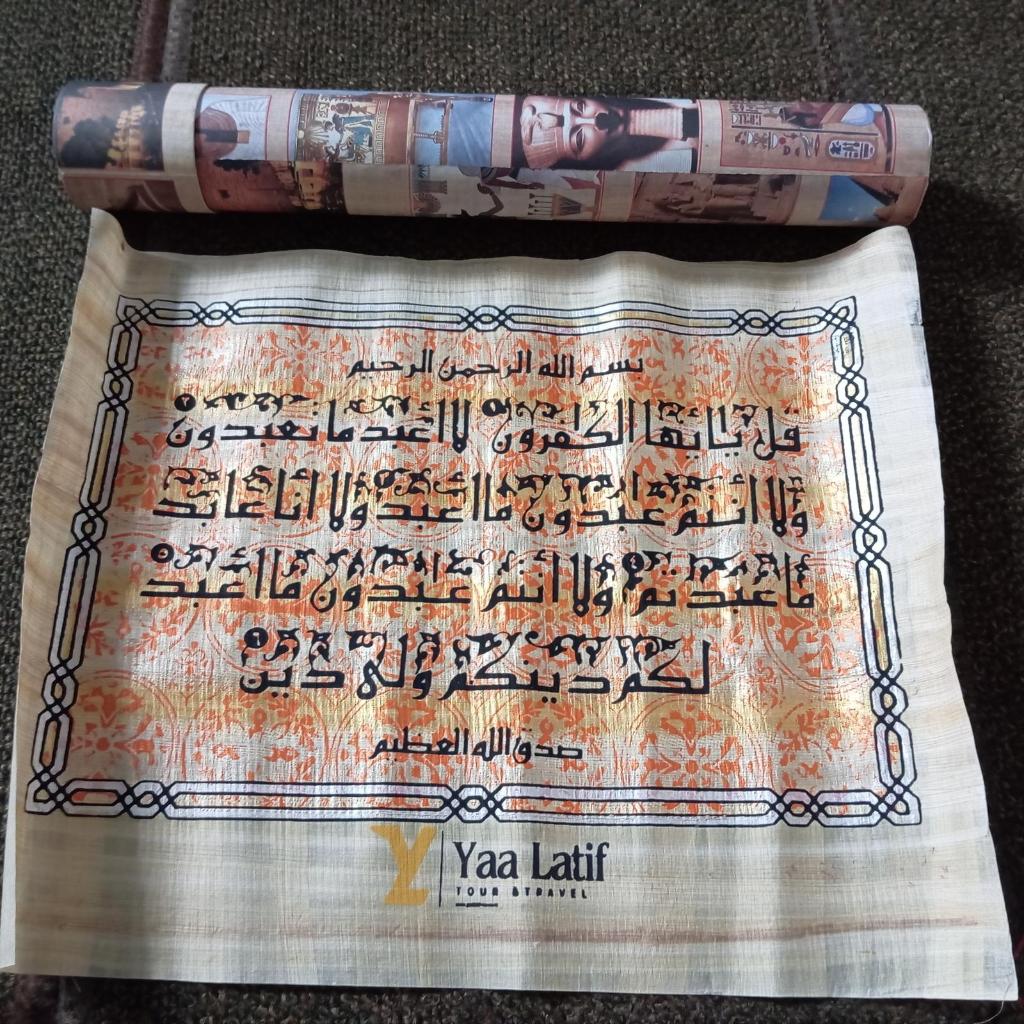 بسم الله الرحمن الرحيم
قل يا يها الكفرون ١ لا أعبد ما تعبدون ٢
ولا أنتم عبدون ما أعبد ٣ ولا أنا عابد
ما عبدتم ٤ ولا أنتم عبدون ما أعبد ٥
لكم دينكم ولى دين ٦
صدق الله العظيم
Yaa Latif
TOUR & TRAVEL